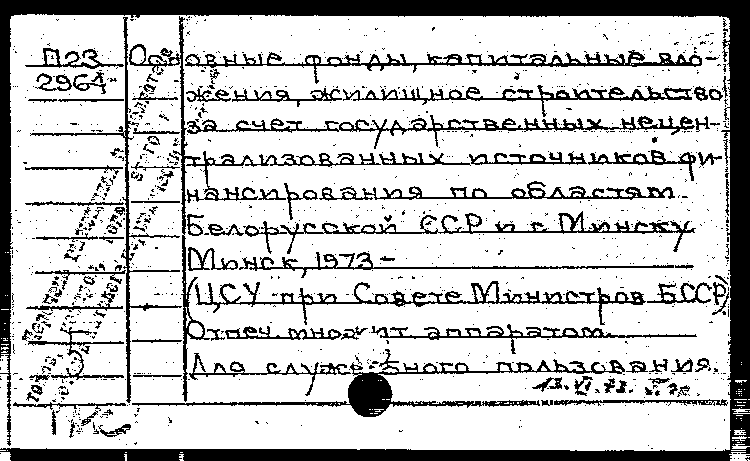 П23
2964
Основные фонды, капитальные вло-
жения, жилищное строительство
за счет государственных нецен-
трализованных источников фи-
нансирования по областям
Белорусской ССР и г. Минску
Минск, 1973 -
(ЦСУ при Совете Министров БССР)
Отпеч. множит аппаратом.
Для служебного пользования.